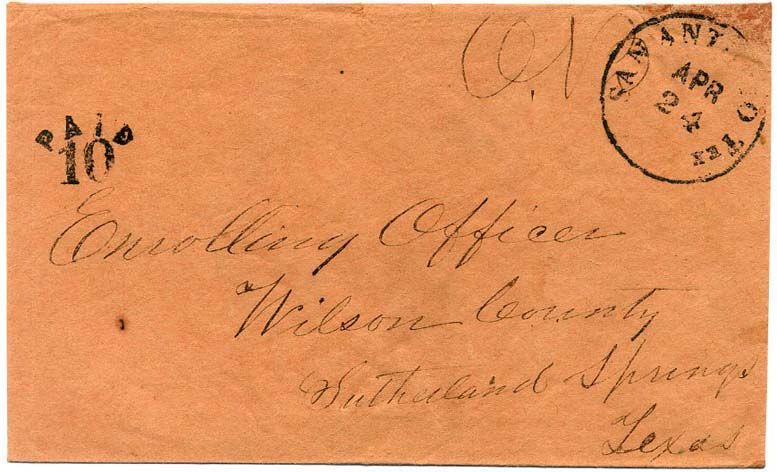 SAN ANTONIO TEX
APR
24
PAID
10
Enrolling Officer
Wilson County
Sutherland Springs
Texas